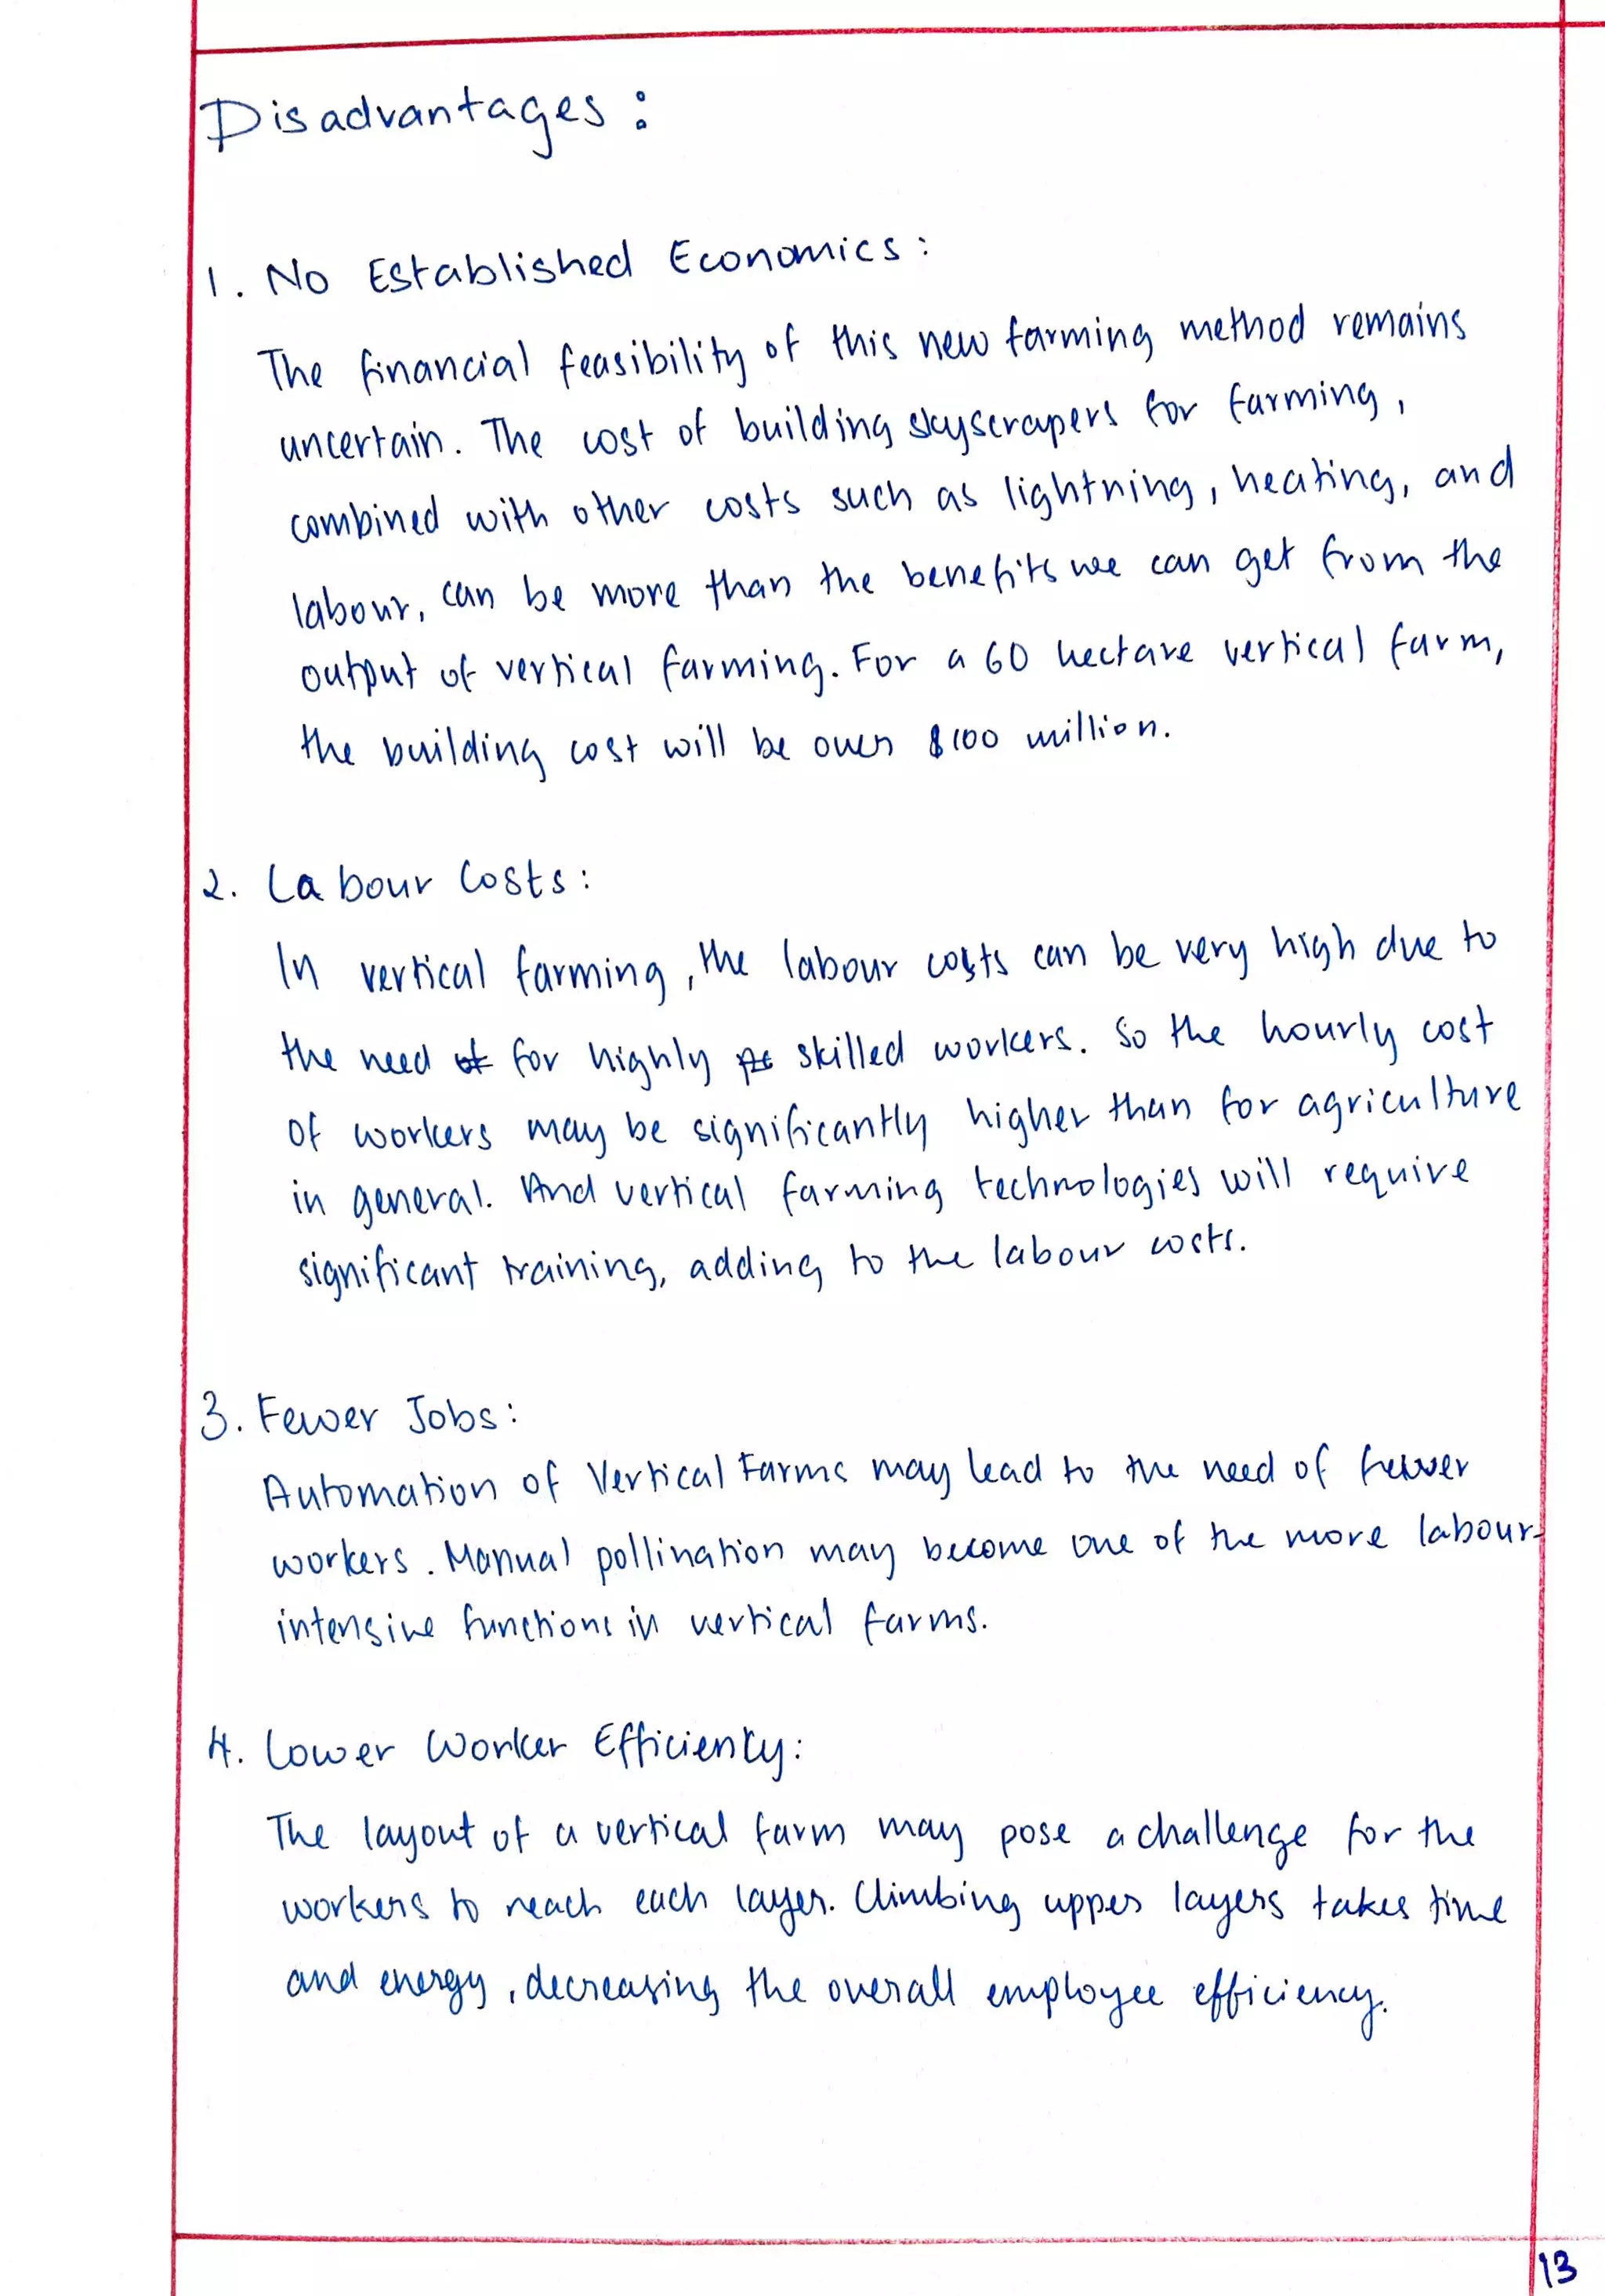 Disadvantages:
1. No Established Economics:
The financial feasibility of this new farming method remains
uncertain. The cost of building skyscrapers for farming,
combined with other costs such as lightning, heating, and
labour, can be more than the benefits we can get from the
output of vertical farming. For a 60 hectare vertical farm,
the building cost will be over $100 million.
2. Labour Costs:
In vertical farming, the labour costs can be very high due to
the need for highly skilled workers. So the hourly cost
of workers may be significantly higher than for agriculture
in general. And vertical farming technologies will require
significant training, adding to the labour costs.
3. Fewer Jobs:
Automation of Vertical Farms may lead to the need of fewer
workers. Manual pollination may become one of the more labour-
intensive functions in vertical farms.
4. Lower Worker Efficiency:
The layout of a vertical farm may pose a challenge for the
workers to reach each layer. Climbing upper layers takes time
and energy, decreasing the overall employee efficiency.
13